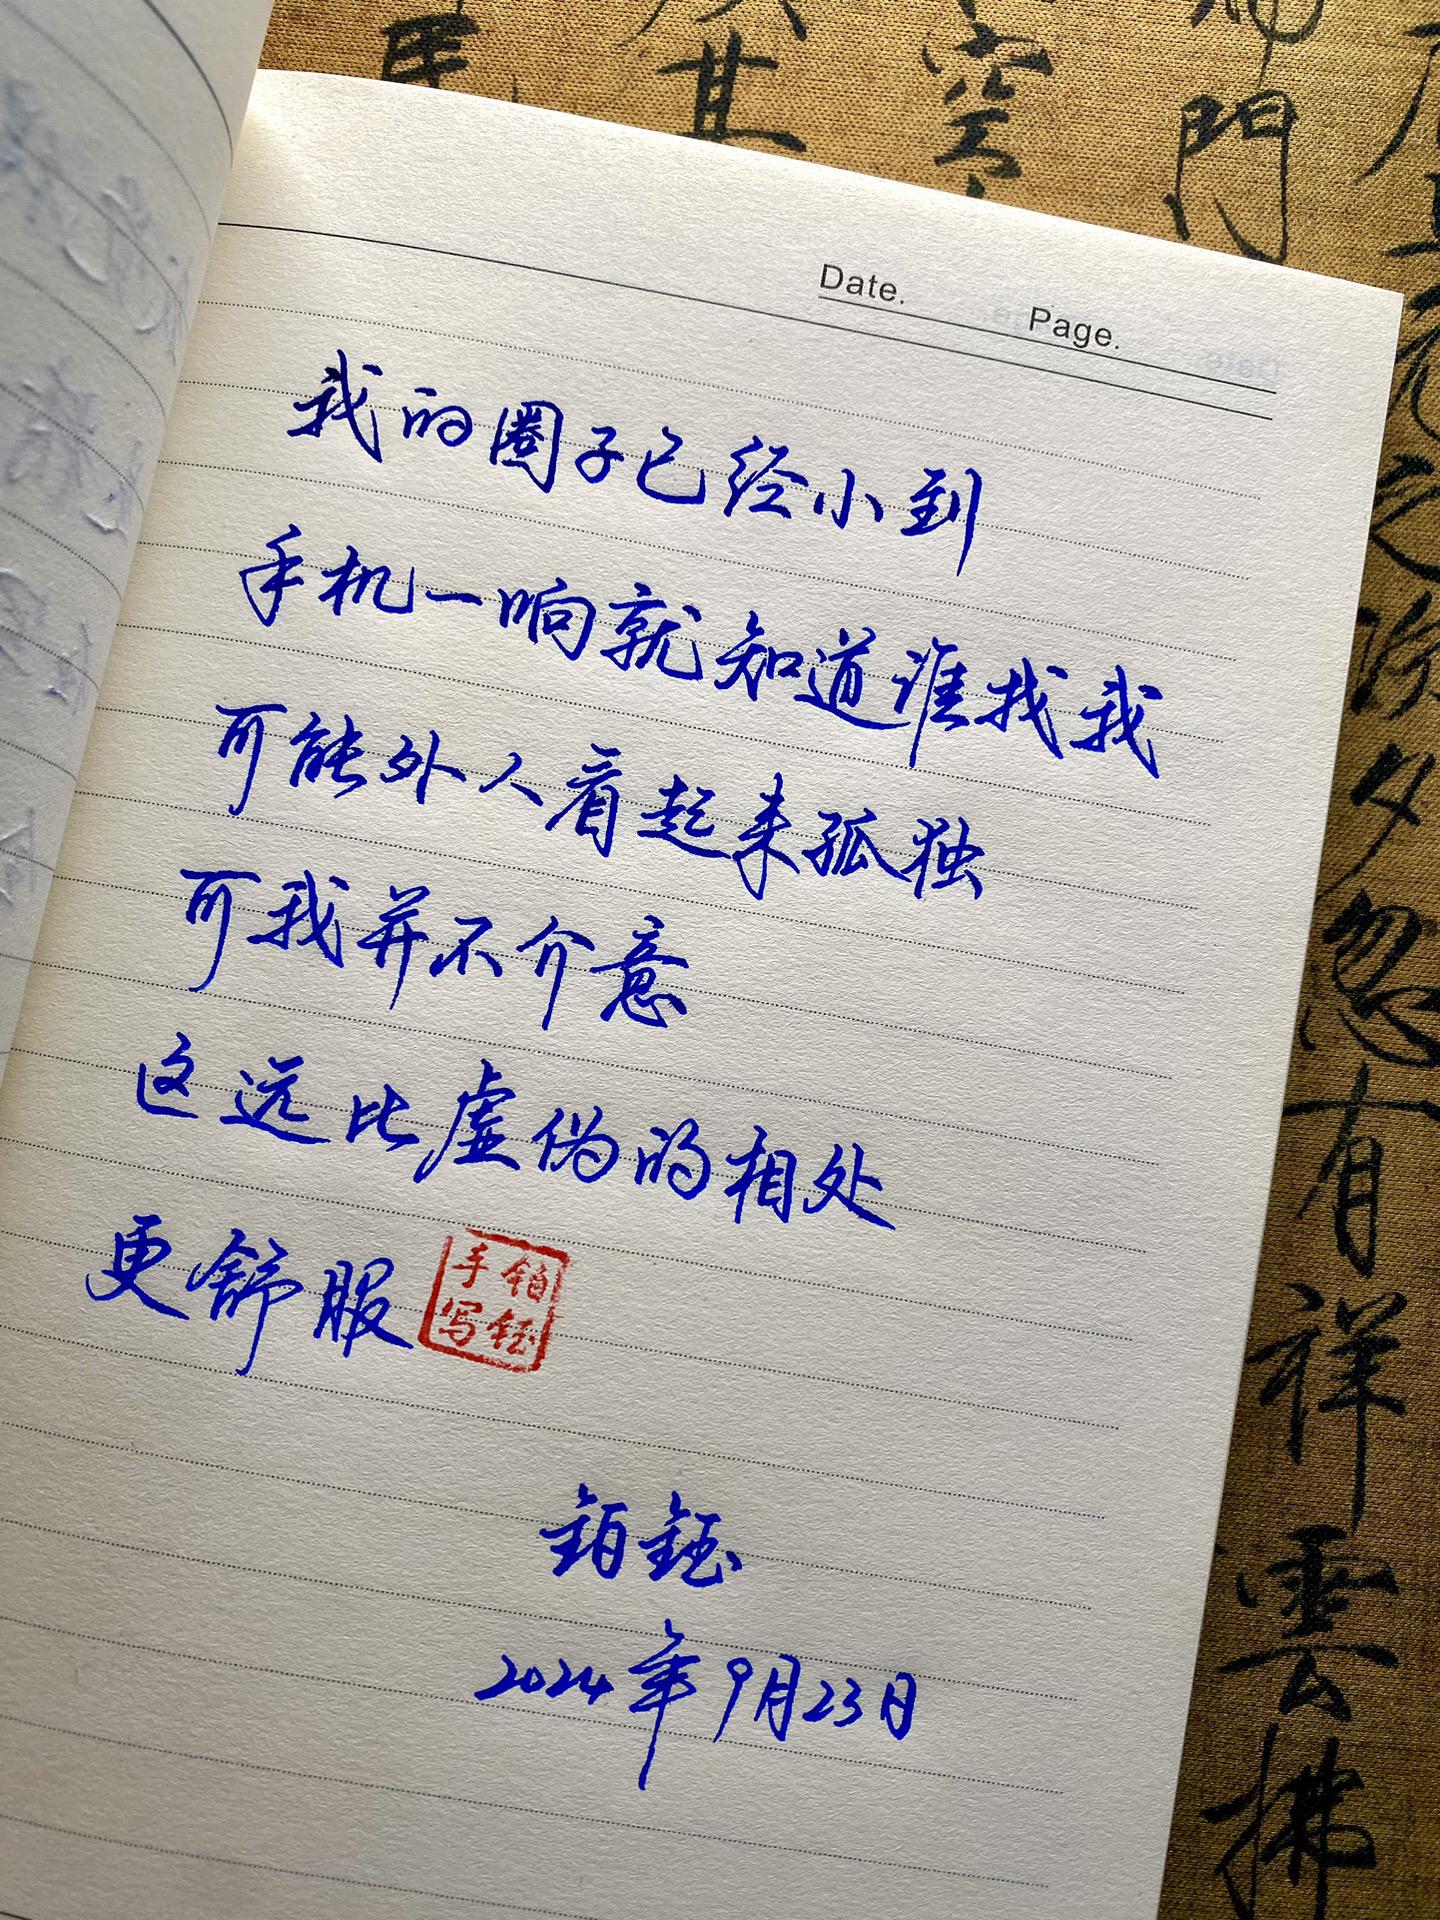 Date.
Page.
我的圈子已经小到
手机一响就知道谁找我
可能外人看起来孤独
可我并不介意
这远比虚伪的相处
更舒服
铂钰
手写
铂钰
2024年9月23日
門
其
有
祥
雲
拂